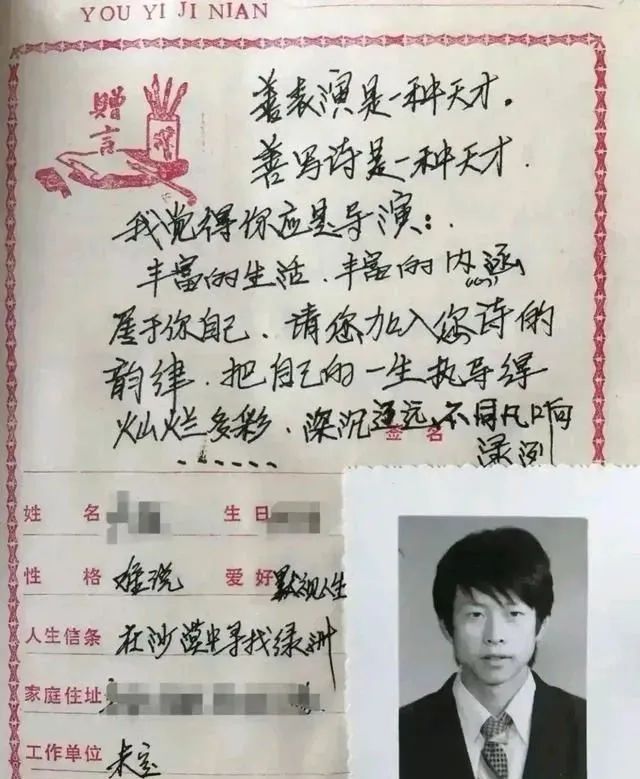 YOU YI JI NIAN
赠言
善表演是一种天才。
善写诗是一种天才.
我觉得你应是导演:
丰富的生活、丰富的内涵
属于你自己、请您加入您诗的
韵律、把自己的一生执导得
灿烂多彩、深沉遥远、不同凡响
签名
绿洲
姓 名
生 日
性 格 难说 爱 好 默视人生
人生信条 在沙漠中寻找绿洲
家庭住址
工作单位 未定